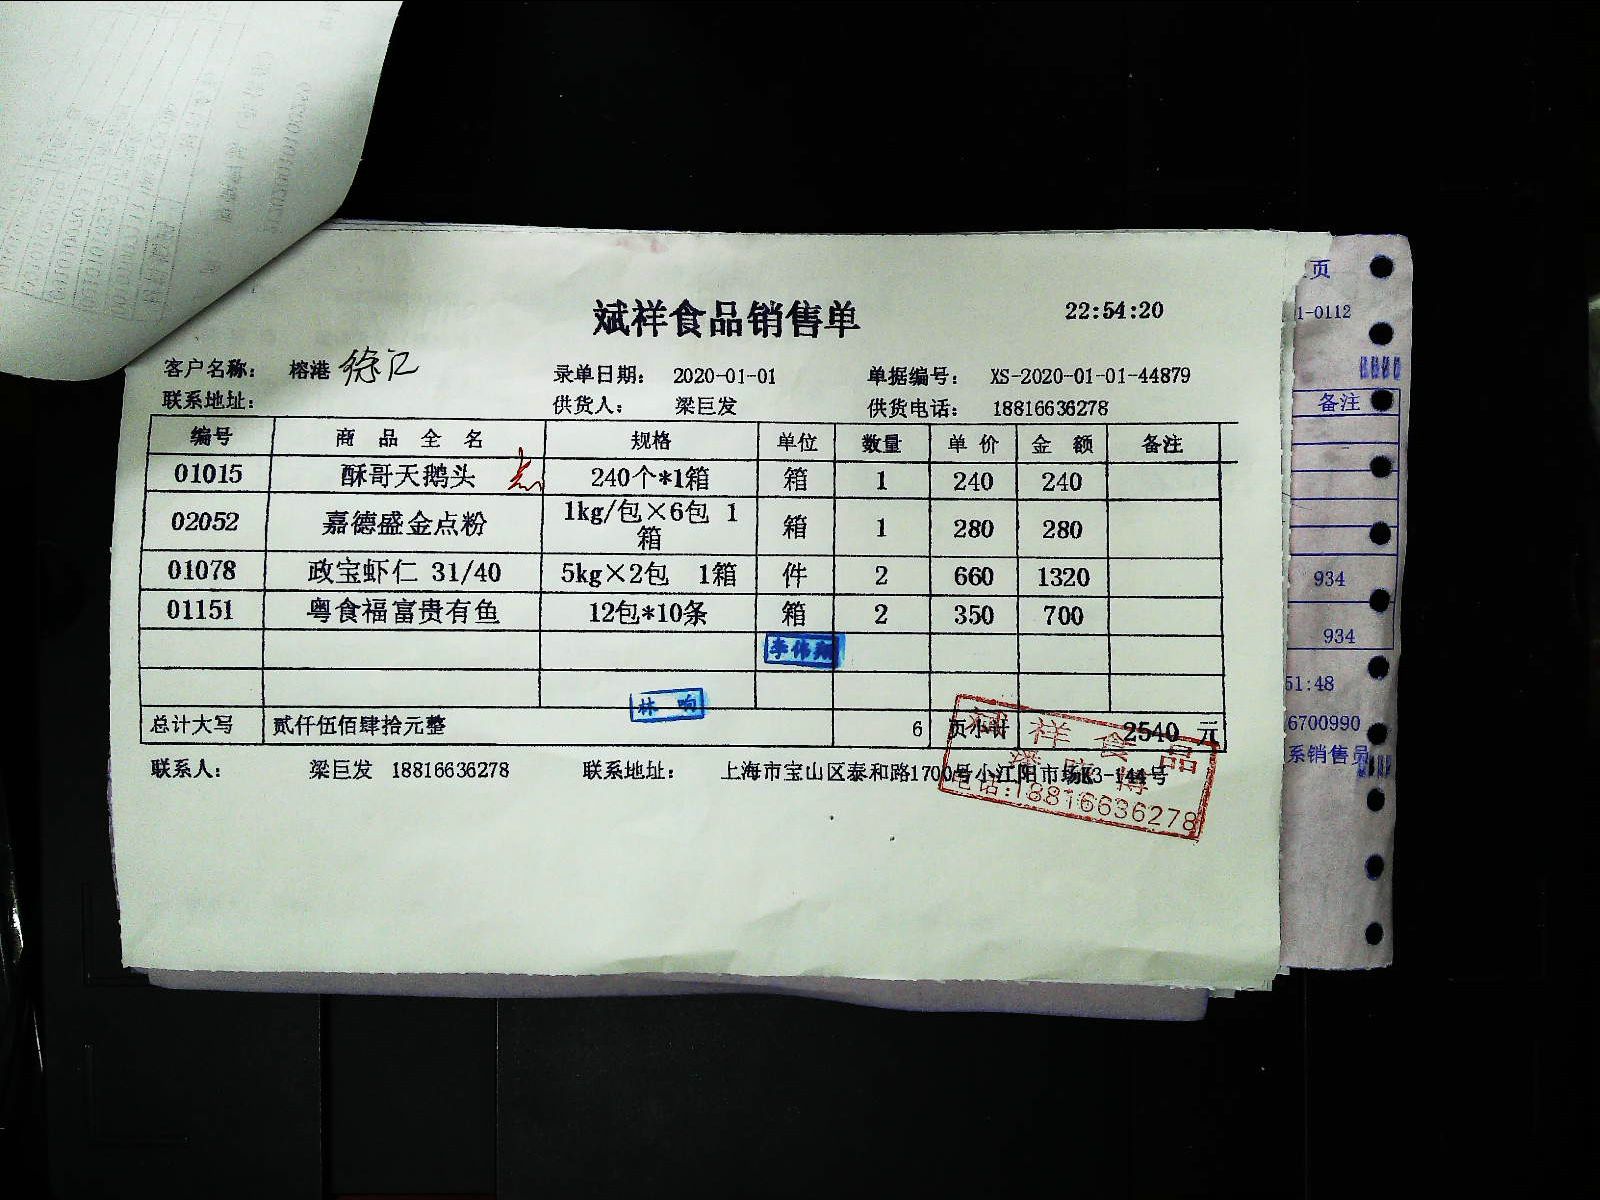 斌祥食品销售单 22:54:20
客户名称： 榕港 徐汇 录单日期： 2020-01-01 单据编号： XS-2020-01-01-44879
联系地址： 供货人： 梁巨发 供货电话： 18816636278
编号 商品全名 规格 单位 数量 单价 金额 备注
01015 酥哥天鹅头 240个*1箱 箱 1 240 240
02052 嘉德盛金点粉 1kg/包×6包 1
箱 箱 1 280 280
01078 政宝虾仁 31/40 5kg×2包 1箱 件 2 660 1320
01151 粤食福富贵有鱼 12包*10条 箱 2 350 700
李伟翔
林响
总计大写 贰仟伍佰肆拾元整 6 页小计 2540 元
联系人： 梁巨发 18816636278 联系地址： 上海市宝山区泰和路1700号小江阳市场K3-144号
斌祥食品
电话:18816636278
页
1-0112
备注
934
934
51:48
6700990
系销售员